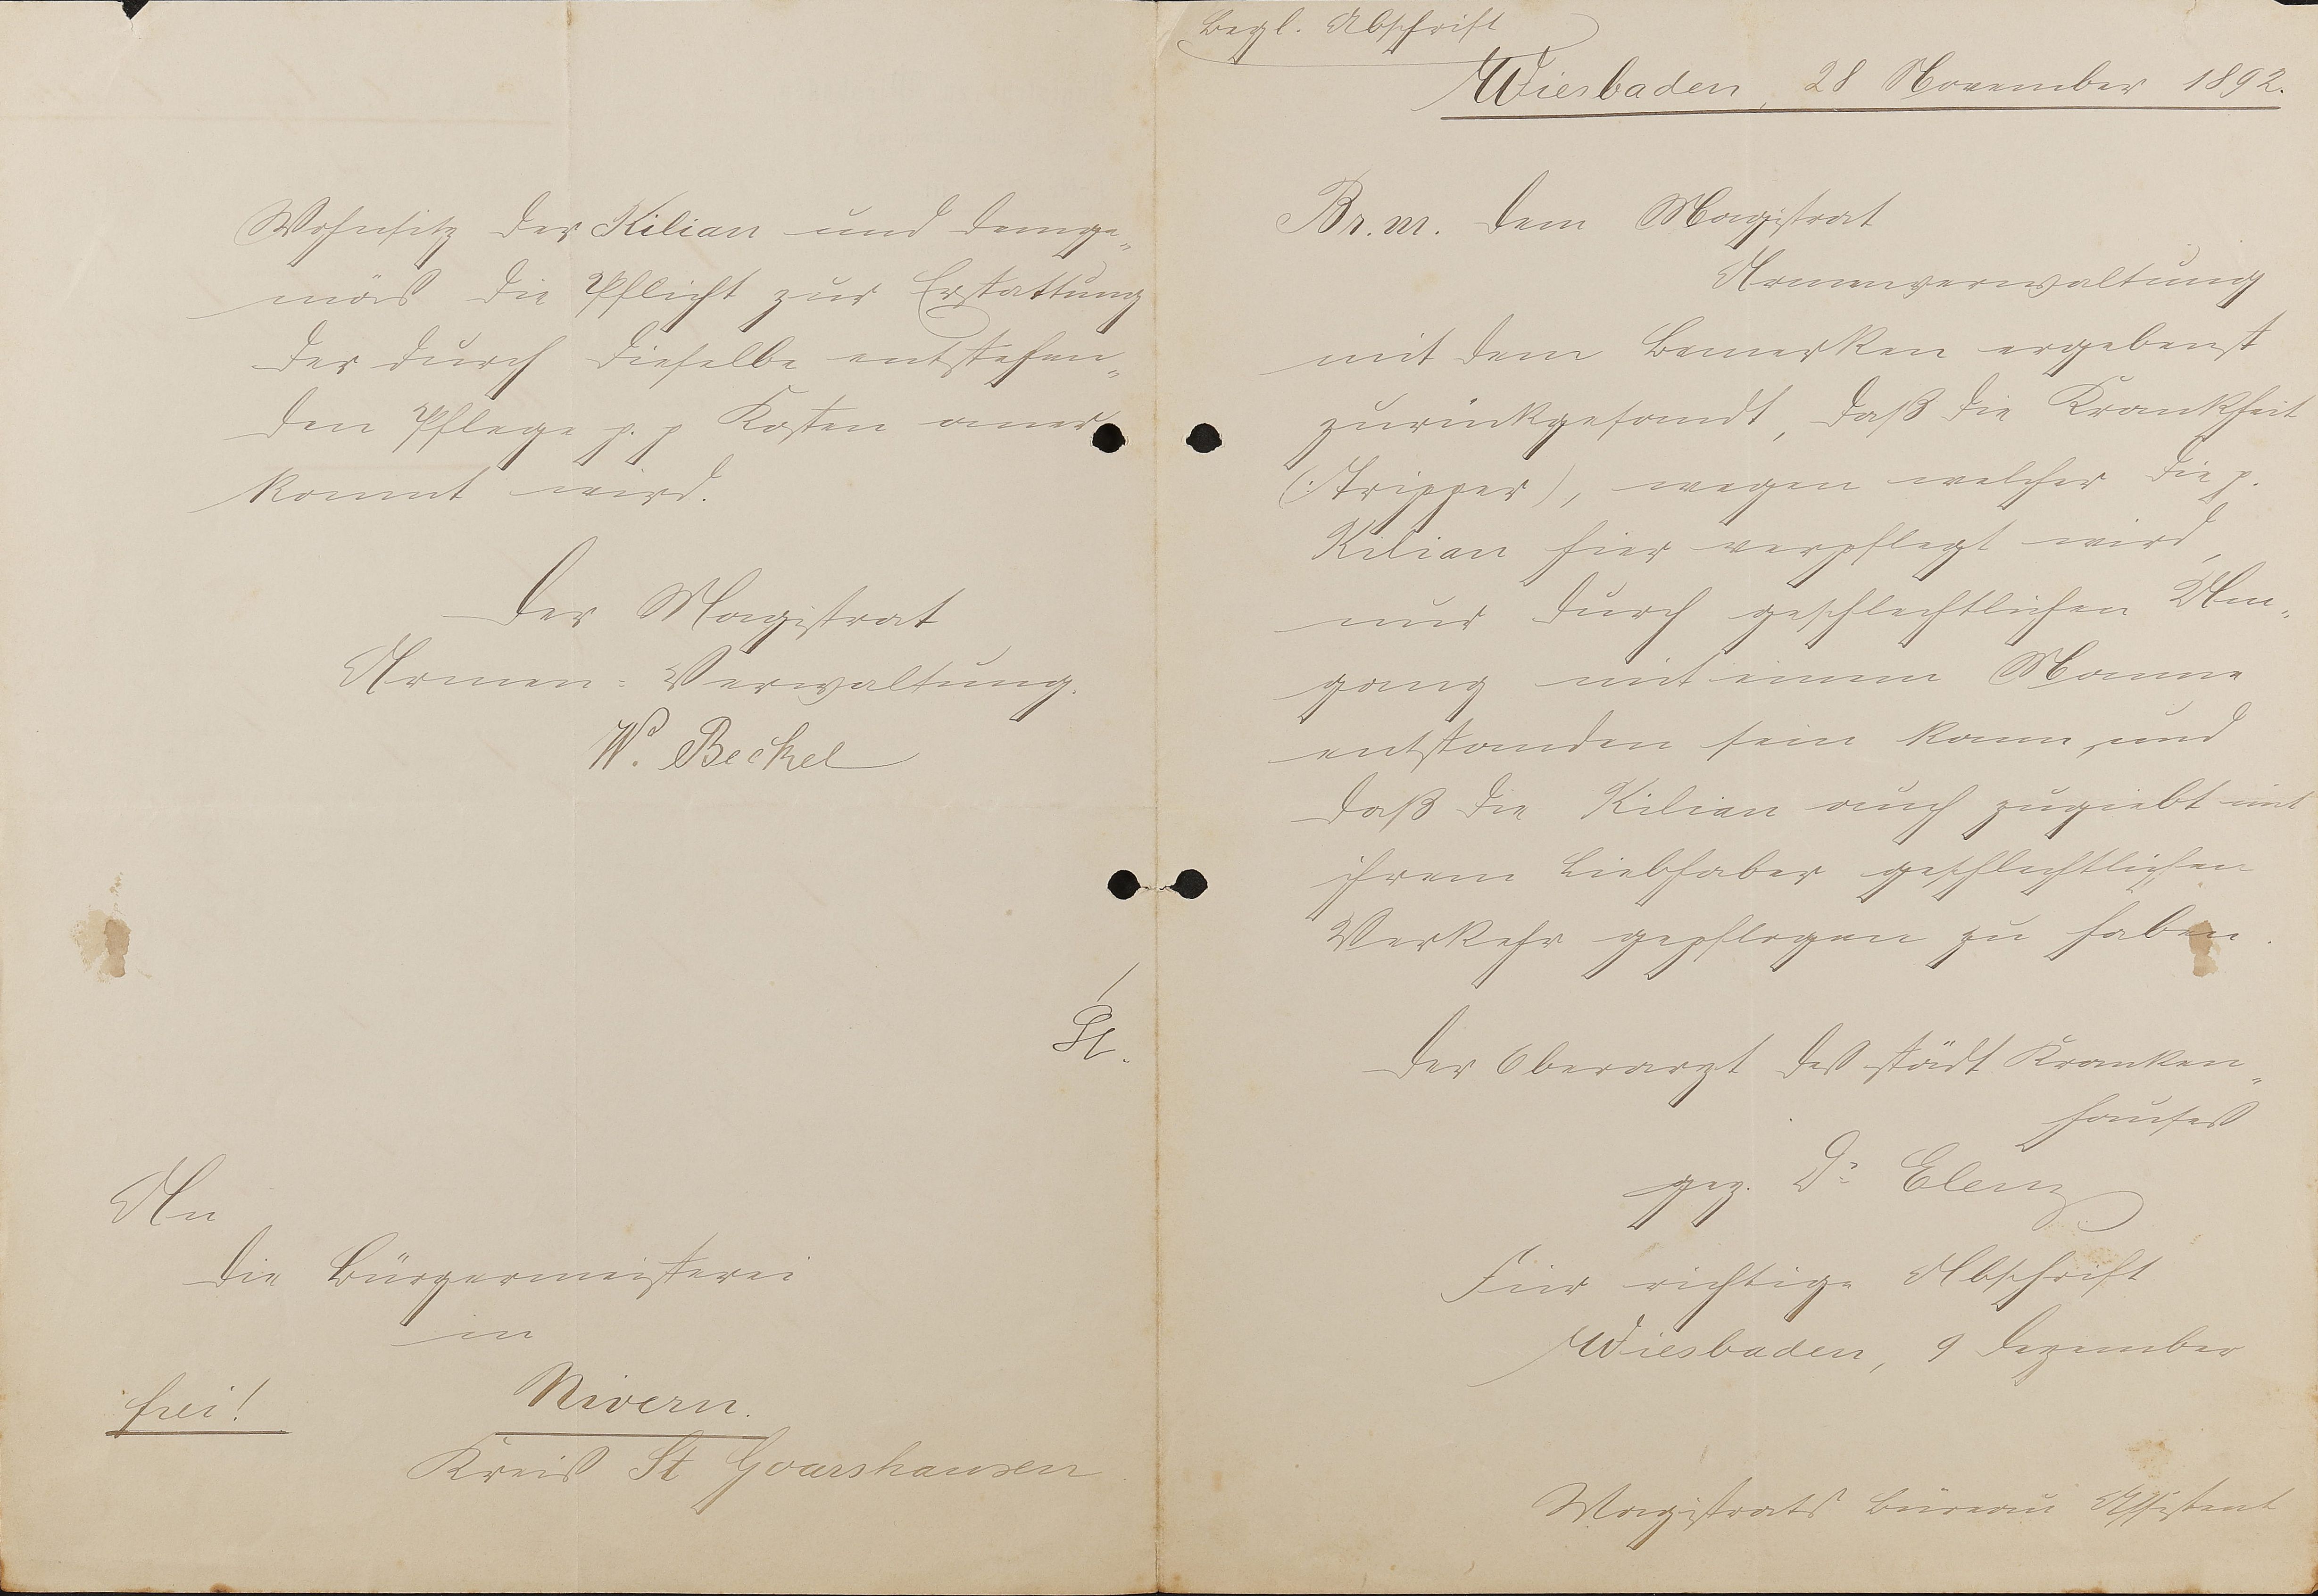 Wohnsitz der Kilian und demge-
mäß die Pflicht zur Erstattung
der durch dieselbe entstehen-
den Pflege p. p Kosten aner
kannt wird.
Der Magistrat
Armen-Verwaltung.
W. Beckel
An
die Bürgermeisterei
in
Nivern.
frei!
Kreis St Goarshausen
Begl. Abschrift
Wiesbaden, 28 November 1892.
Br. m. dem Magistrat
Armenverwaltung
mit dem Bemerken ergebenst
zurückgesandt, daß die Krankheit
(: Tripper), wegen welcher die p.
Kilian hier verpflegt wird,
nur durch geschlechtlichen Um-
gang mit einem Manne
entstanden sein kann, und
daß die Kilian auch zugiebt mit
ihrem Liebhaber geschlechtlichen
Verkehr gepflogen zu haben.
Der Oberarzt des städt Kranken-
hauses
gez. Dr Elenz
Für richtige Abschrift
Wiesbaden, 9 Dezember
Magistrats Büreau Assistent